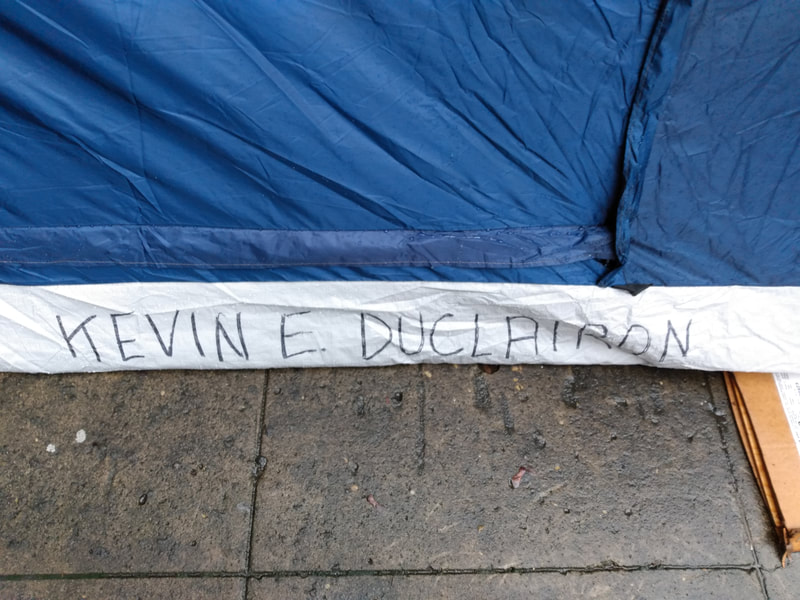 KEVIN E. DUCLAIRON